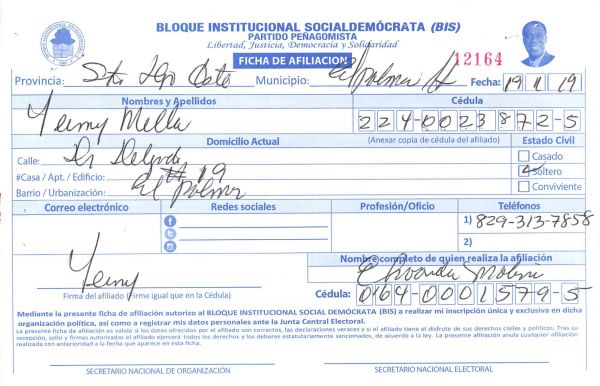 BLOQUE INSTITUCIONAL SOCIALDEMÓCRATA (BIS)
PARTIDO PEÑAGOMISTA
Libertad, Justicia, Democracia y Solidaridad
FICHA DE AFILIACION
12164
Provincia: Sto Dgo Oeste Municipio: El Palmar Fecha: 19 11 19
Nombres y Apellidos Cédula
Yeimy Mella 224-0023872-5
Domicilio Actual (Anexar copia de cédula del afiliado) Estado Civil
Calle: Delgado Casado
#Casa / Apt. / Edificio: #19 Soltero
Barrio / Urbanización: El Palmar Conviviente
Correo electrónico Redes sociales Profesión/Oficio Teléfonos
1) 829-313-7858
2)
Nombre completo de quien realiza la afiliación
Yeimy Molini
Firma del afiliado (Firme igual que en la Cédula) Cédula: 0164-0001579-5
Mediante la presente ficha de afiliación autorizo al BLOQUE INSTITUCIONAL SOCIAL DEMÓCRATA (BIS) a realizar mi inscripción única y exclusiva en dicha
organización política, así como a registrar mis datos personales ante la Junta Central Electoral.
La presente ficha de afiliación es válida si los datos ofrecidos por el afiliado son correctos, las declaraciones veraces y si el afiliado tiene el disfrute de sus derechos civiles y políticos. Tras su
recepción, sello y firmas autorizadas el afiliado ejercerá todos los derechos y los deberes estatutariamente sancionados, de acuerdo a la ley. La presente afiliación anula cualquier afiliación
realizada con anterioridad a la fecha que aparece en esta ficha.
SECRETARIO NACIONAL DE ORGANIZACIÓN SECRETARIO NACIONAL ELECTORAL